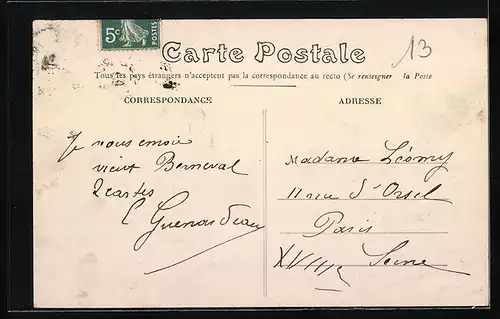 5c
POSTES
13
Carte Postale
Tous les pays étrangers n'acceptent pas la correspondance au recto (Se renseigner la Poste
CORRESPONDANCE
ADRESSE
Je vous envoie
vieux Berneval
2 cartes
Madame
11 rue d'Orsel
Paris
XVIII Seine